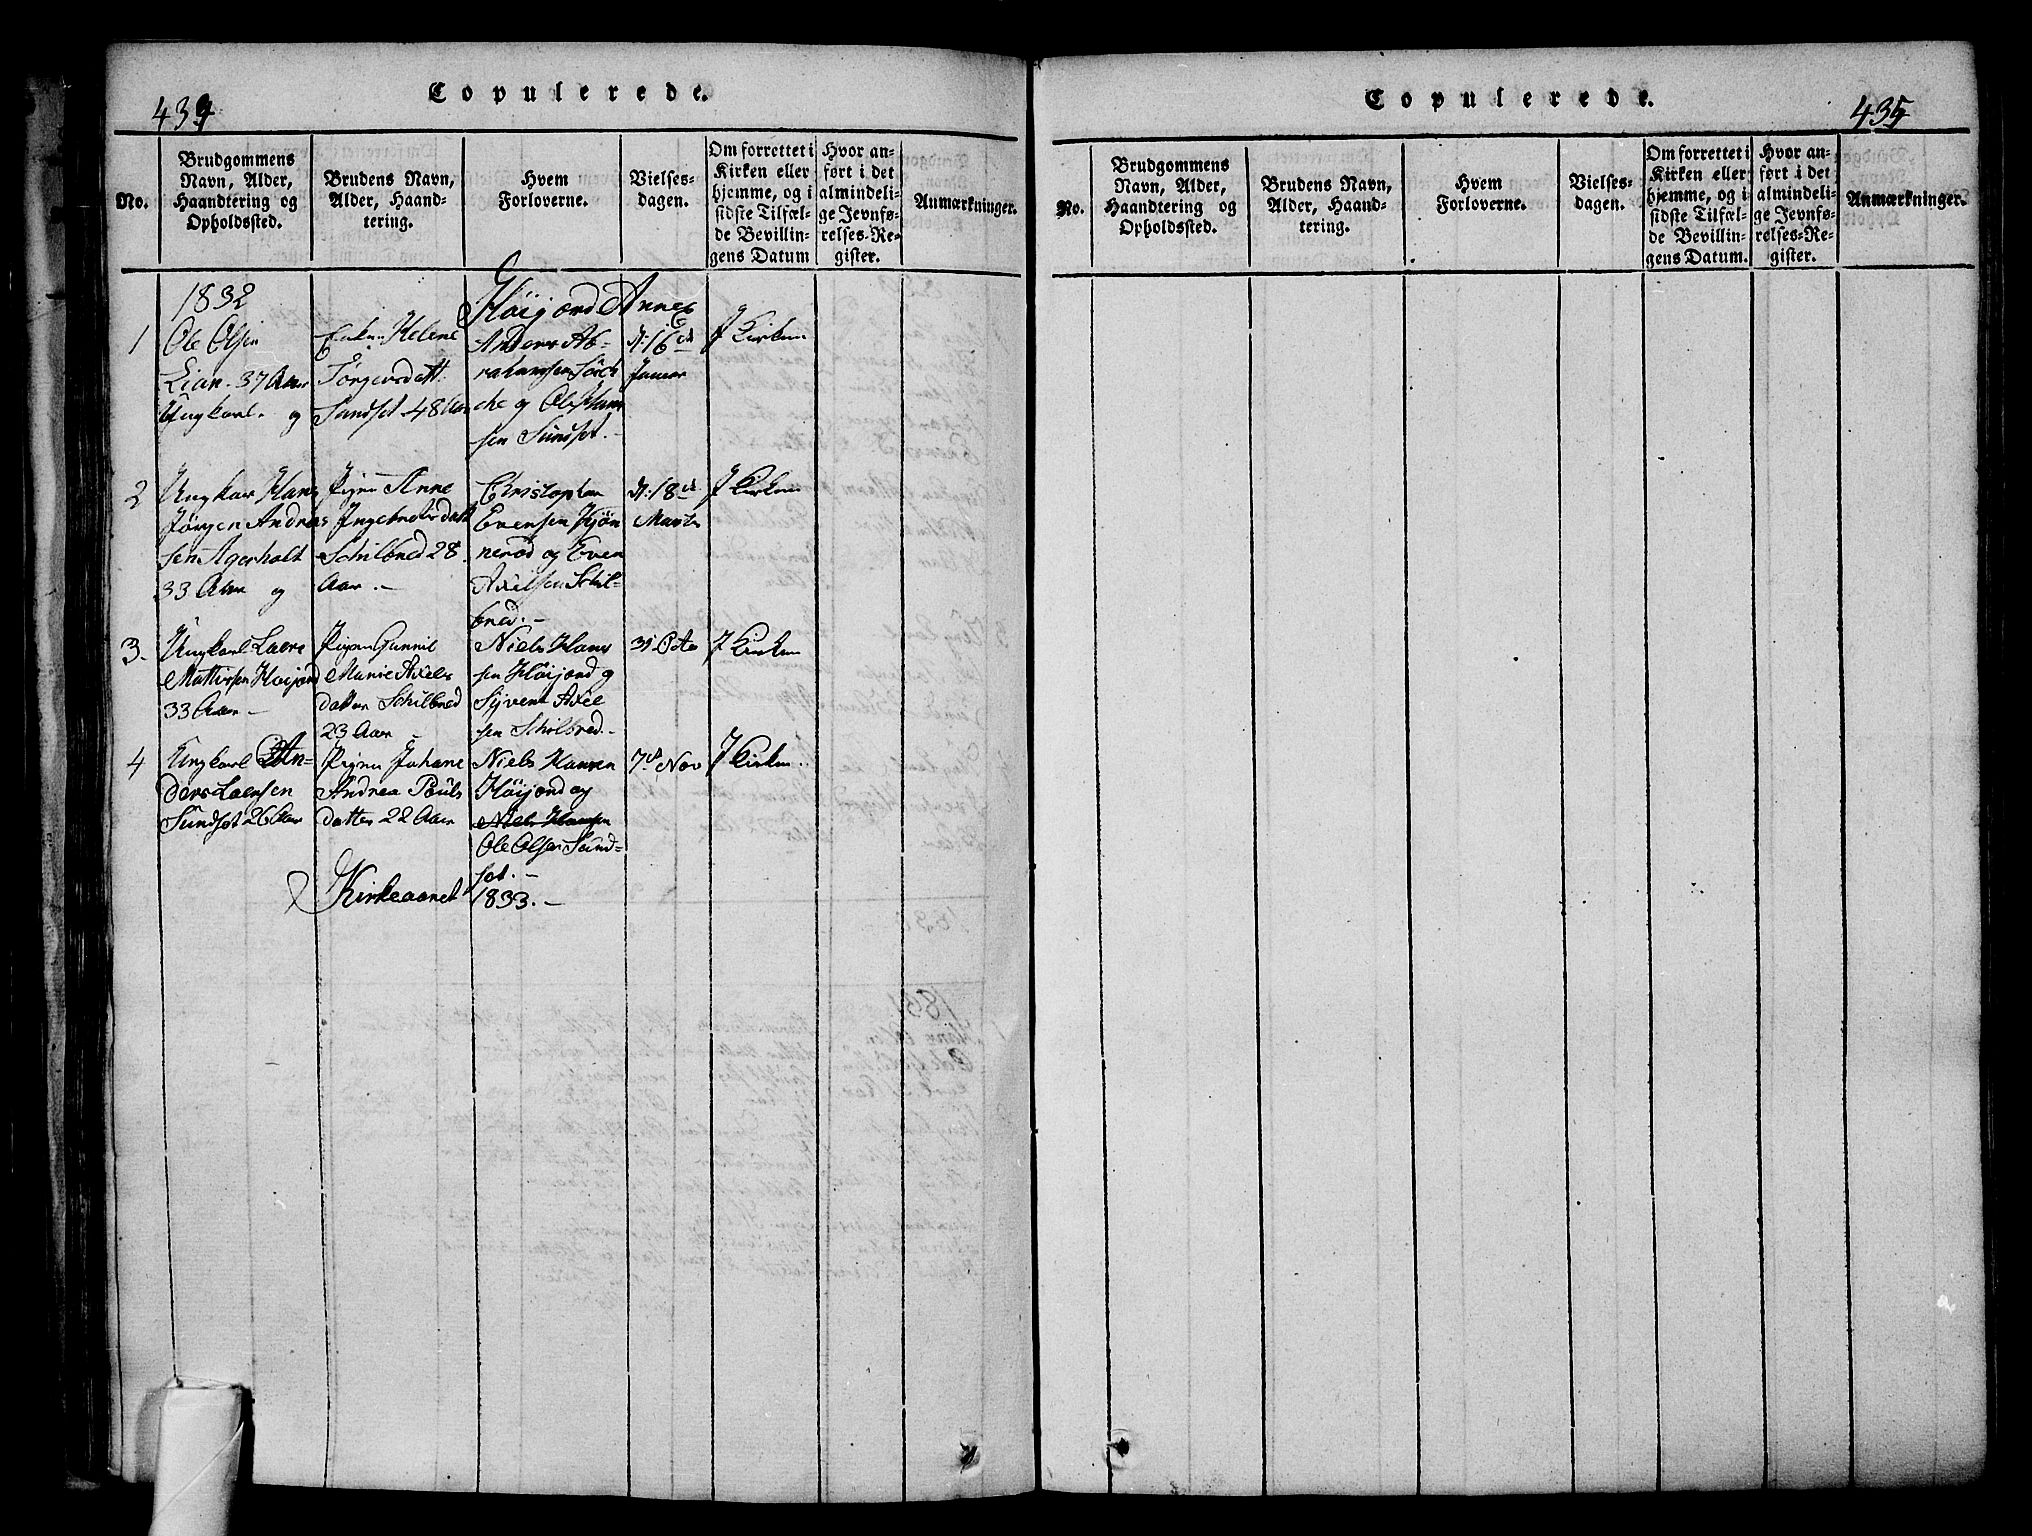 434
Copulerede.
No.
Brudgommens
Navn, Alder,
Haandtering og
Opholdssted.
Brudens Navn,
Alder, Haand-
tering.
Hvem
Forloverne.
Vielses-
dagen.
Om forrettet i
Kirken eller
hjemme, og i
sidste Tilfæl-
de Bevillin-
gens Datum
Hvor an-
ført i det
almindeli-
ge Jevnfø-
relses-Re-
gister.
Anmærkninger.
1832
Höijord Annex
1
Ole Olsen
Lian. 37 Aar
Ungkarl. og
Enken Helene
Jörgensdatt.
Sundset 48 Aar
Anders Ab-
rahamsen
og Ole Hans
sen Sundset.-
16de
Januar
J Kirken
2
Ungkar Hans
Jørgen Andrea
sen Agerholt
33 Aar og
Pigen Anne
Ingebretsdatt
Schilbred 28
Aar.-
Christopher
Evensen Kjön
neröd og Even
Axelsen Schil-
bred.-
18de
Marts
J Kirken
3.
Ungkarl Laers
Mathisen Höijord
33 Aar -
Pigen Gunnil
Marie Axels
datter Schilbred
23 Aar -
Niels Hans
sen Höijord og
Syvert Axel
sen Schilbred.-
31 Octo
J Kirken
4
Ungkarl An-
ders Laersen
Sundset 26 Aar
Pigen Johane
Andrea Pouls
datter 22 Aar
Niels Hansen
Höijord og
Niels Hansen
Ole Olsen Sund-
set.-
7de Nov
J Kirken.
Kirkeaaret 1833.-
Copulerede.
435
No.
Brudgommens
Navn, Alder,
Haandtering og
Opholdssted.
Brudens Navn,
Alder, Haand-
tering.
Hvem
Forloverne.
Vielses-
dagen.
Om forrettet i
Kirken eller
hjemme, og i
sidste Tilfæl-
de Bevillin-
gens Datum.
Hvor an-
ført i det
almindeli-
ge Jevnfø-
relses-Re-
gister.
Anmærkninger.